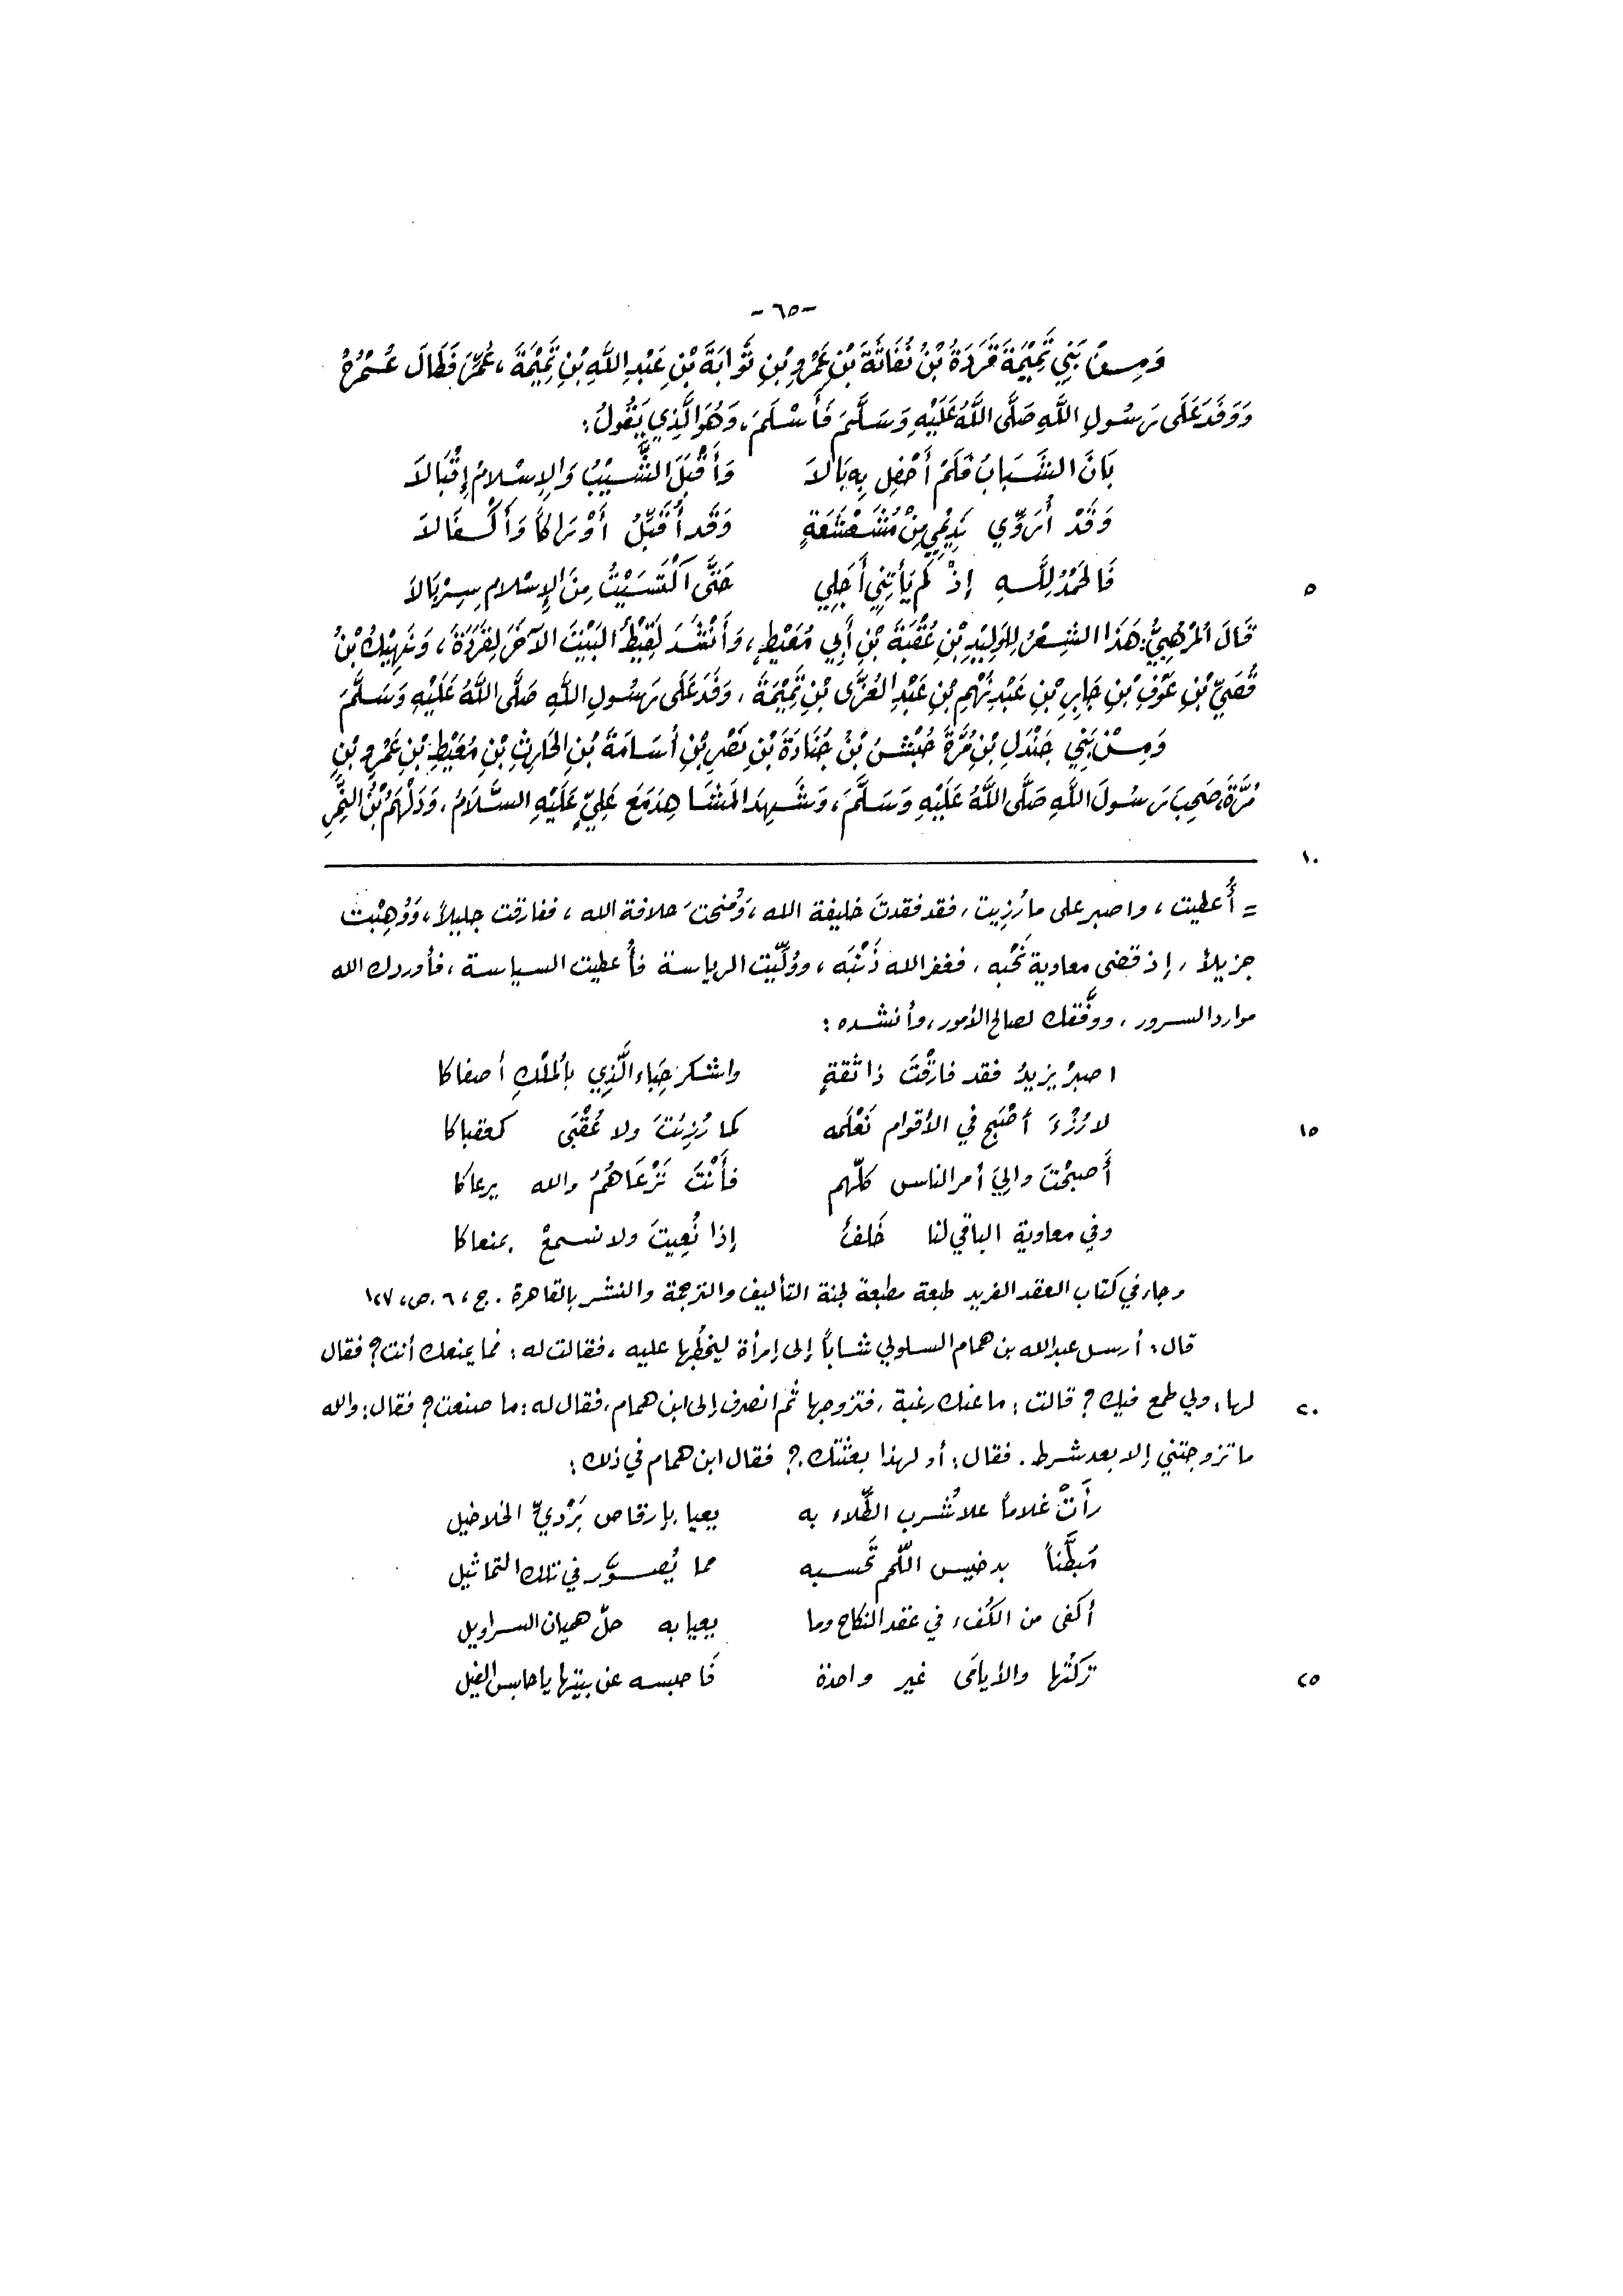 -٦٥-
وَمِنْ بَنِي تَمِيْمَةَ قَرَدَةُ بْنُ نُفَاثَةَ بْنِ عَمْرِو بْنِ ثَوَابَةَ بْنِ عَبْدِ اللَّهِ بْنِ تَمِيْمَةَ، عُمِّرَ فَطَالَ عُمُرُهُ
وَوَفَدَ عَلَى رَسُولِ اللَّهِ صَلَّى اللَّهُ عَلَيْهِ وَسَلَّمَ فَأَسْلَمَ، وَهُوَ الَّذِي يَقُولُ:
بَانَ الشَّبَابُ فَلَمْ أَحْفِلْ بِهِ بَالاَ وَأَقْبَلَ الشَّيْبُ وَالإِسْلامُ إِقْبَالاَ
وَقَدْ أُرَوِّي نَدِيْمِي مِنْ مُشَعْشَعَةٍ وَقَد أُقَلِّبُ أَوْرَاكاً وَأَكْفَالاَ
فَالحَمْدُ لِلَّهِ إِذْ لَمْ يَأْتِنِي أَجَلِي حَتَّى اَكْتَسَيْتُ مِنَ الإِسْلامِ سِرْبَالاَ
٥
قَالَ المُرْهِبِيُّ: هَذَا الشِّعْرُ لِلوَلِيْدِ بْنِ عُقْبَةَ بْنِ أَبِي مُعَيْطٍ، وَأَنْشَدَ لَقِيْطُ البَيْتَ الآخَرَ لِقَرَدَةَ، وَنَهِيْكُ بْنُ
قُصَيِّ بْنِ عَوْفِ بْنِ جَابِرِ بْنِ عَبْدِ نُهْمِ بْنِ عَبْدِ العُزَّى بْنِ تَمِيْمَةَ، وَفَدَ عَلَى رَسُولِ اللَّهِ صَلَّى اللَّهُ عَلَيْهِ وَسَلَّمَ
وَمِنْ بَنِي جَنْدَلِ بْنِ مُرَّةَ حُبْشِيُّ بْنُ جُنَادَةَ بْنِ نَصْرِ بْنِ أُسَامَةَ بْنِ الحَارِثِ بْنِ مُعَيْطِ بْنِ عَمْرِو بْنِ
مُرَّةَ، صَحِبَ رَسُولَ اللَّهِ صَلَّى اللَّهُ عَلَيْهِ وَسَلَّمَ، وَشَهِدَ المَشَاهِدَ مَعَ عَلِيٍّ عَلَيْهِ السَّلامُ، وَدَلْهَمُ بْنُ
١٠
= أُعطيت، واصبر على ما رُزِيت، فقد فقدتَ خليفة الله، وَمُنحتَ خلافة الله، ففارقت جليلاً، وَوُهِبْت
جزيلاً، إذ قضى معاوية نَحْبه، فغفر الله ذَنْبَه، ووُلِّيْت الرياسة فأُعطيت السياسة، فأوردك الله
موارد السرور، ووفَّقك لصالح الأمور، وأنشده:
اصبرْ يزيدُ فقد فارقْتَ ذا ثقةٍ واشكر حِبَاء الَّذِي بالمُلْكِ أصفاكا
لا رُزْءَ أصْبَح في الأقوام نَعْلَمه كما رُزِئتَ ولا عُقْبَى كعقباكا
١٥
أَصبحْتَ واليَ أمر الناس كلّهم فأَنْتَ تَرْعَاهُمُ والله يرعاكا
وفي معاوية الباقي لنا خَلفٌ إذا نُعِيتَ ولا نسمعْ بمنعاكا
وجاء في كتاب العقد الفريد طبعة مطبعة لجنة التأليف والترجمة والنشر بالقاهرة. ج، ٦. ص، ١٢٧
قال: أرسل عبد الله بن همام السلولي شاباً إلى إمرأة ليخطُبها عليه، فقالت له: فما يمنعك أنت؟ فقال
لها: ولي طمع فيك؟ قالت: ما عنك رغبة، فتزوجها ثم انصرف إلى ابن همام، فقال له: ما صنعت؟ فقال: والله
٢٠
ما تزوجتني إلا بعد شرط. فقال: أو لهذا بعثتك.؟ فقال ابن همام في ذلك:
رأَتْ غلاماً علا شُرب الطِّلاء به يعيا بإرقاص بَرْديّ الخلاخيل
مُبطَّناً بدخيس اللّحم تَحسبه مما يُصوَّر في تلك التماثيل
أكفى من الكُفء في عقد النكاح وما يعيا به حلّ هميان السراويل
تركْتُها والأيامَى غير واحدة فَاحبسه عن بيتها يا حابس الفيل
٢٥